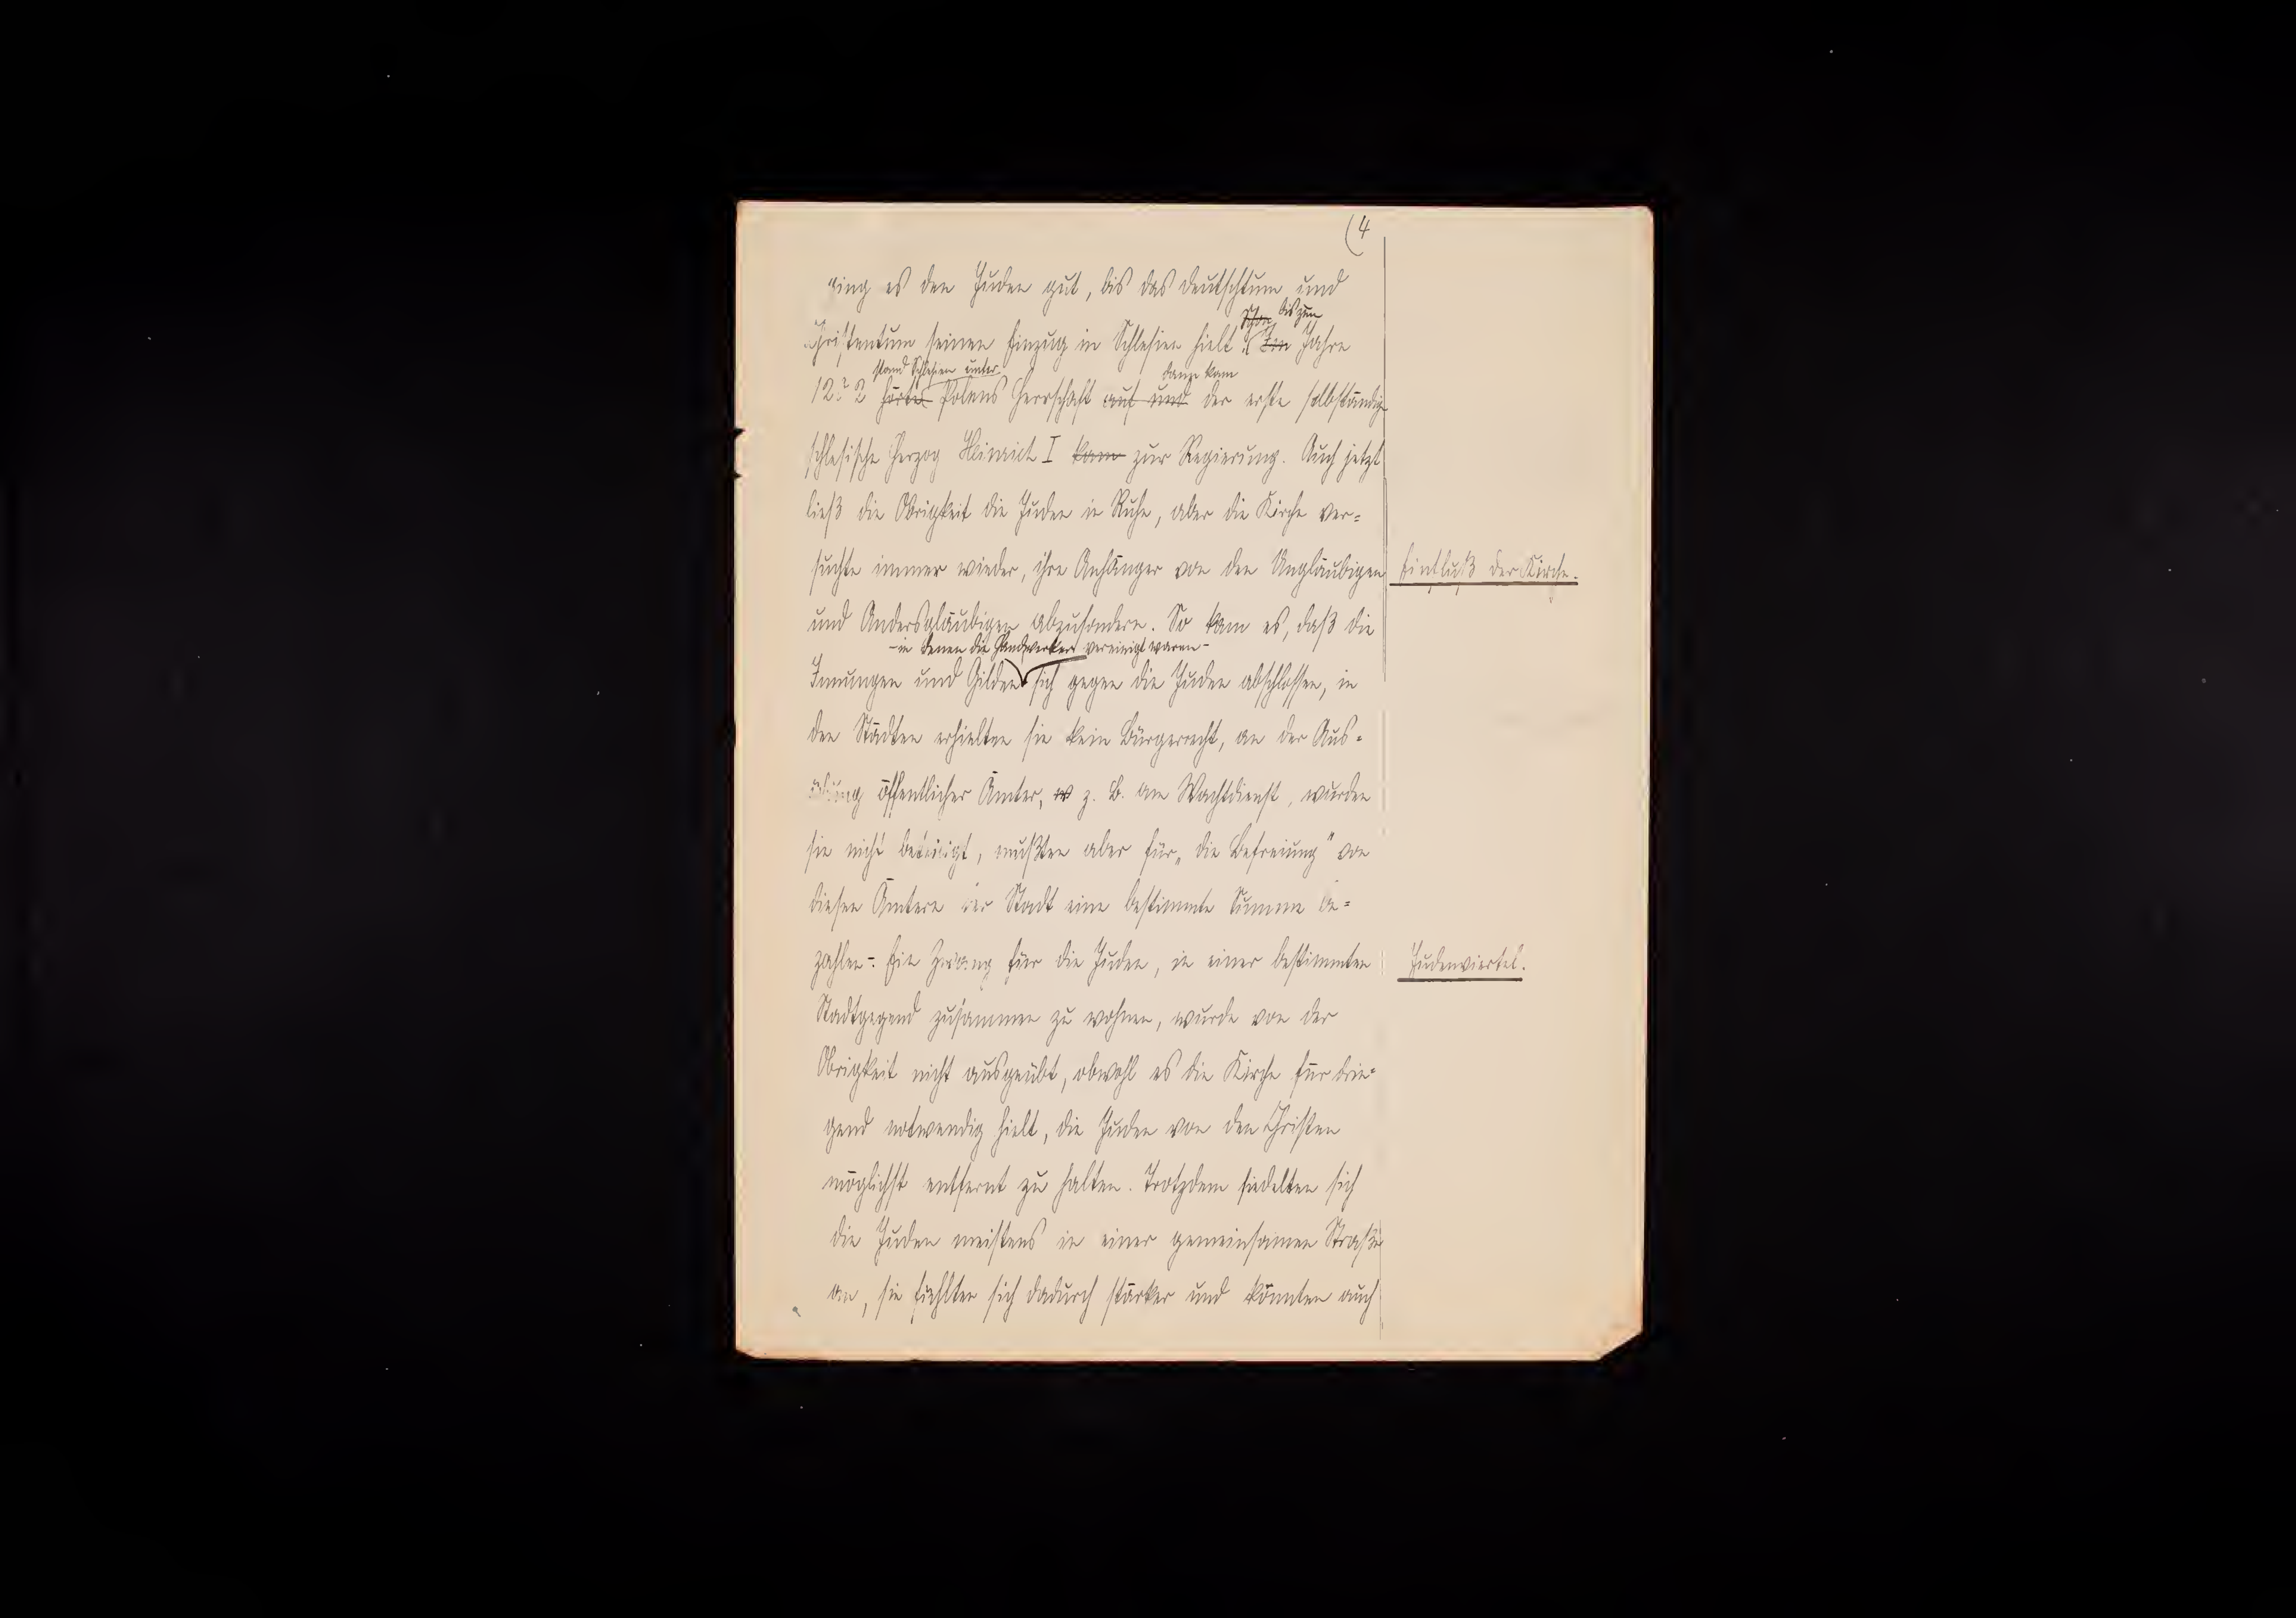 (4
ging es den Juden gut, bis das Deutschtum und
Schon bis zum
Christentum seinen Einzug in Schlesien hielt. Im Jahre
stand Schlesien unter dann kam
12?2 hörte Polens Herrschaft auf und der erste selbständige
schlesische Herzog Heinrich I kam zur Regierung. Auch jetzt
ließ die Obrigkeit die Juden in Ruhe, aber die Kirche ver=
suchte immer wieder, ihre Anhänger von den Ungläubigen
Einfluß der Kirche.
und Andersgläubigen abzusondern. So kam es, daß die
- in denen die Handwerker vereinigt waren -
Innungen und Gilden sich gegen die Juden abschlossen, in
den Städten erhielten sie kein Bürgerrecht, an der Aus=
übung öffentlicher Ämter, z. B. am Wachtdienst, wurden
sie nicht beteiligt, mußten aber für „die Befreiung" von
diesen Ämtern der Stadt eine bestimmte Summe be=
zahlen-. Ein Zwang für die Juden, in einer bestimmten
Judenviertel.
Stadtgegend zusammen zu wohnen, wurde von der
Obrigkeit nicht ausgeübt, obwohl es die Kirche für drin=
gend notwendig hielt, die Juden von den Christen
möglichst entfernt zu halten. Trotzdem siedelten sich
die Juden meistens in einer gemeinsamen Straße
an, sie fühlten sich dadurch stärker und konnten auch